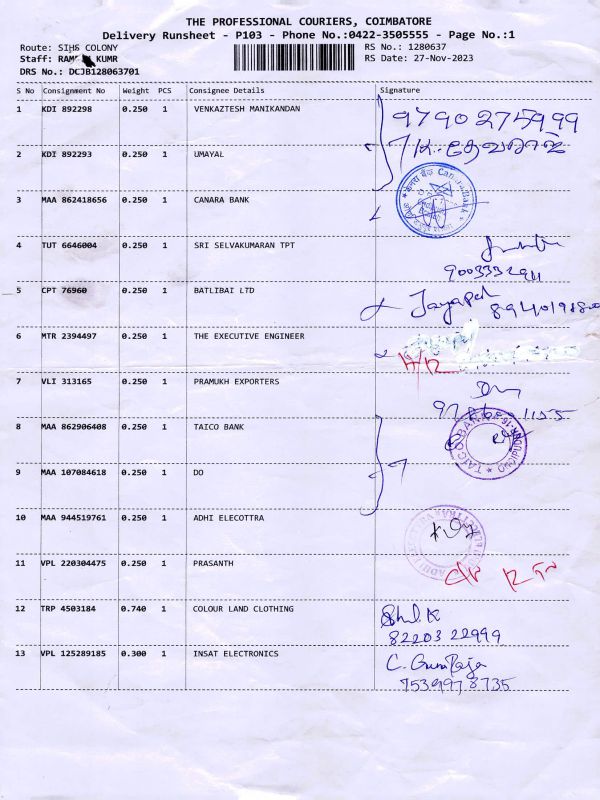 THE PROFESSIONAL COURIERS, COIMBATORE
Delivery Runsheet - P103 - Phone No.:0422-3505555 - Page No.:1
Route: SIHS COLONY RS No.: 1280637
Staff: KUMR RS Date: 27-Nov-2023
DRS No.: DCJB128063701
S No Consignment No Weight PCS Consignee Details Signature
1 KDI 892298 0.250 1 VENKAZTESH MANIKANDAN 9790275999
2 KDI 892293 0.250 1 UMAYAL
3 MAA 862418656 0.250 1 CANARA BANK Canara Bank
4 TUT 6646004 0.250 1 SRI SELVAKUMARAN TPT
5 CPT 76960 0.250 1 BATLIBAI LTD
6 MTR 2394497 0.250 1 THE EXECUTIVE ENGINEER
7 VLI 313165 0.250 1 PRAMUKH EXPORTERS
8 MAA 862906408 0.250 1 TAICO BANK TAICO BANK
9 MAA 107084618 0.250 1 DO
10 MAA 944519761 0.250 1 ADHI ELECOTTRA
11 VPL 220304475 0.250 1 PRASANTH
12 TRP 4503184 0.740 1 COLOUR LAND CLOTHING
82203 22999
13 VPL 125289185 0.300 1 INSAT ELECTRONICS C. GuruRaja